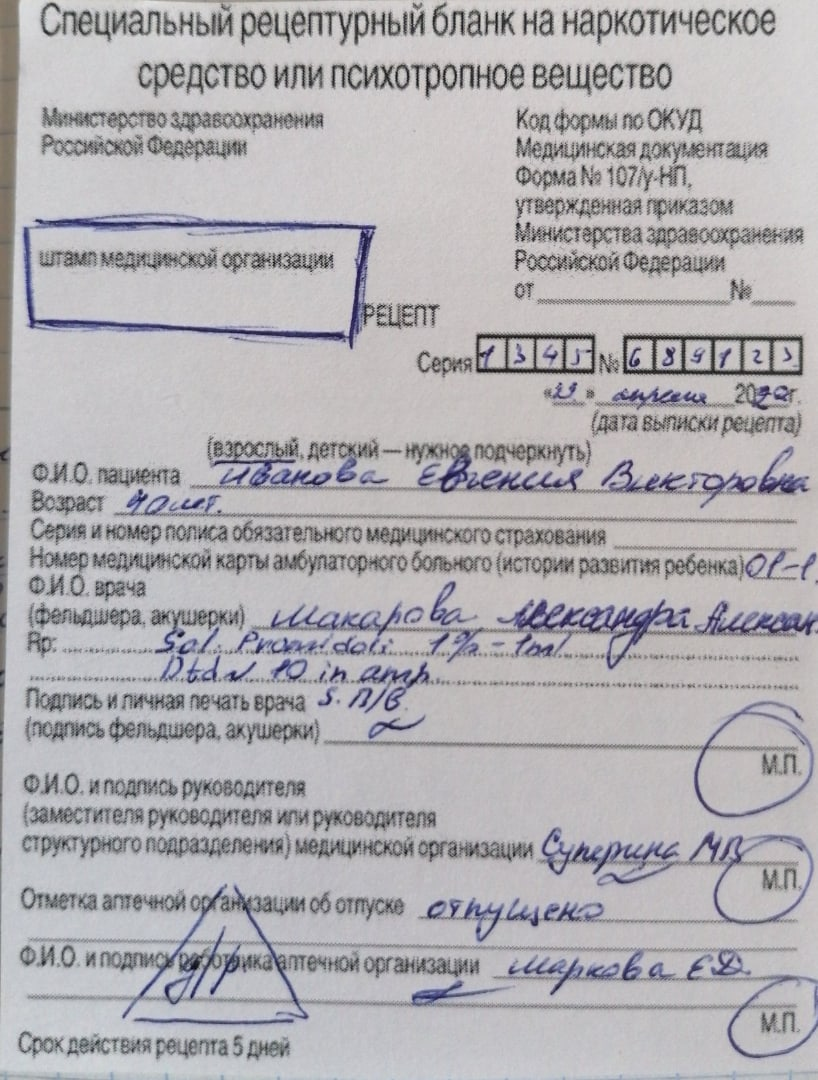 Специальный рецептурный бланк на наркотическое
средство или психотропное вещество
Министерство здравоохранения
Российской Федерации
Код формы по ОКУД
Медицинская документация
Форма № 107/у-НП,
утвержденная приказом
Министерства здравоохранения
Российской Федерации
от №
штамп медицинской организации
РЕЦЕПТ
Серия 1345 № 689123
« » апреля 20 г.
(дата выписки рецепта)
(взрослый, детский — нужное подчеркнуть)
Ф.И.О. пациента Иванова Евгения Викторовна
Возраст 40 лет.
Серия и номер полиса обязательного медицинского страхования
Номер медицинской карты амбулаторного больного (истории развития ребенка) 01-1
Ф.И.О. врача
(фельдшера, акушерки) Макарова Александра Алексан
Rp: Sol. Promidoli 1% - 1ml
Dtd N 10 in amp.
Подпись и личная печать врача S. П/В.
(подпись фельдшера, акушерки)
М.П.
Ф.И.О. и подпись руководителя
(заместителя руководителя или руководителя
структурного подразделения) медицинской организации МВ
М.П.
Отметка аптечной организации об отпуске отпущено
Ф.И.О. и подпись работника аптечной организации Маркова ЕД.
М.П.
Срок действия рецепта 5 дней